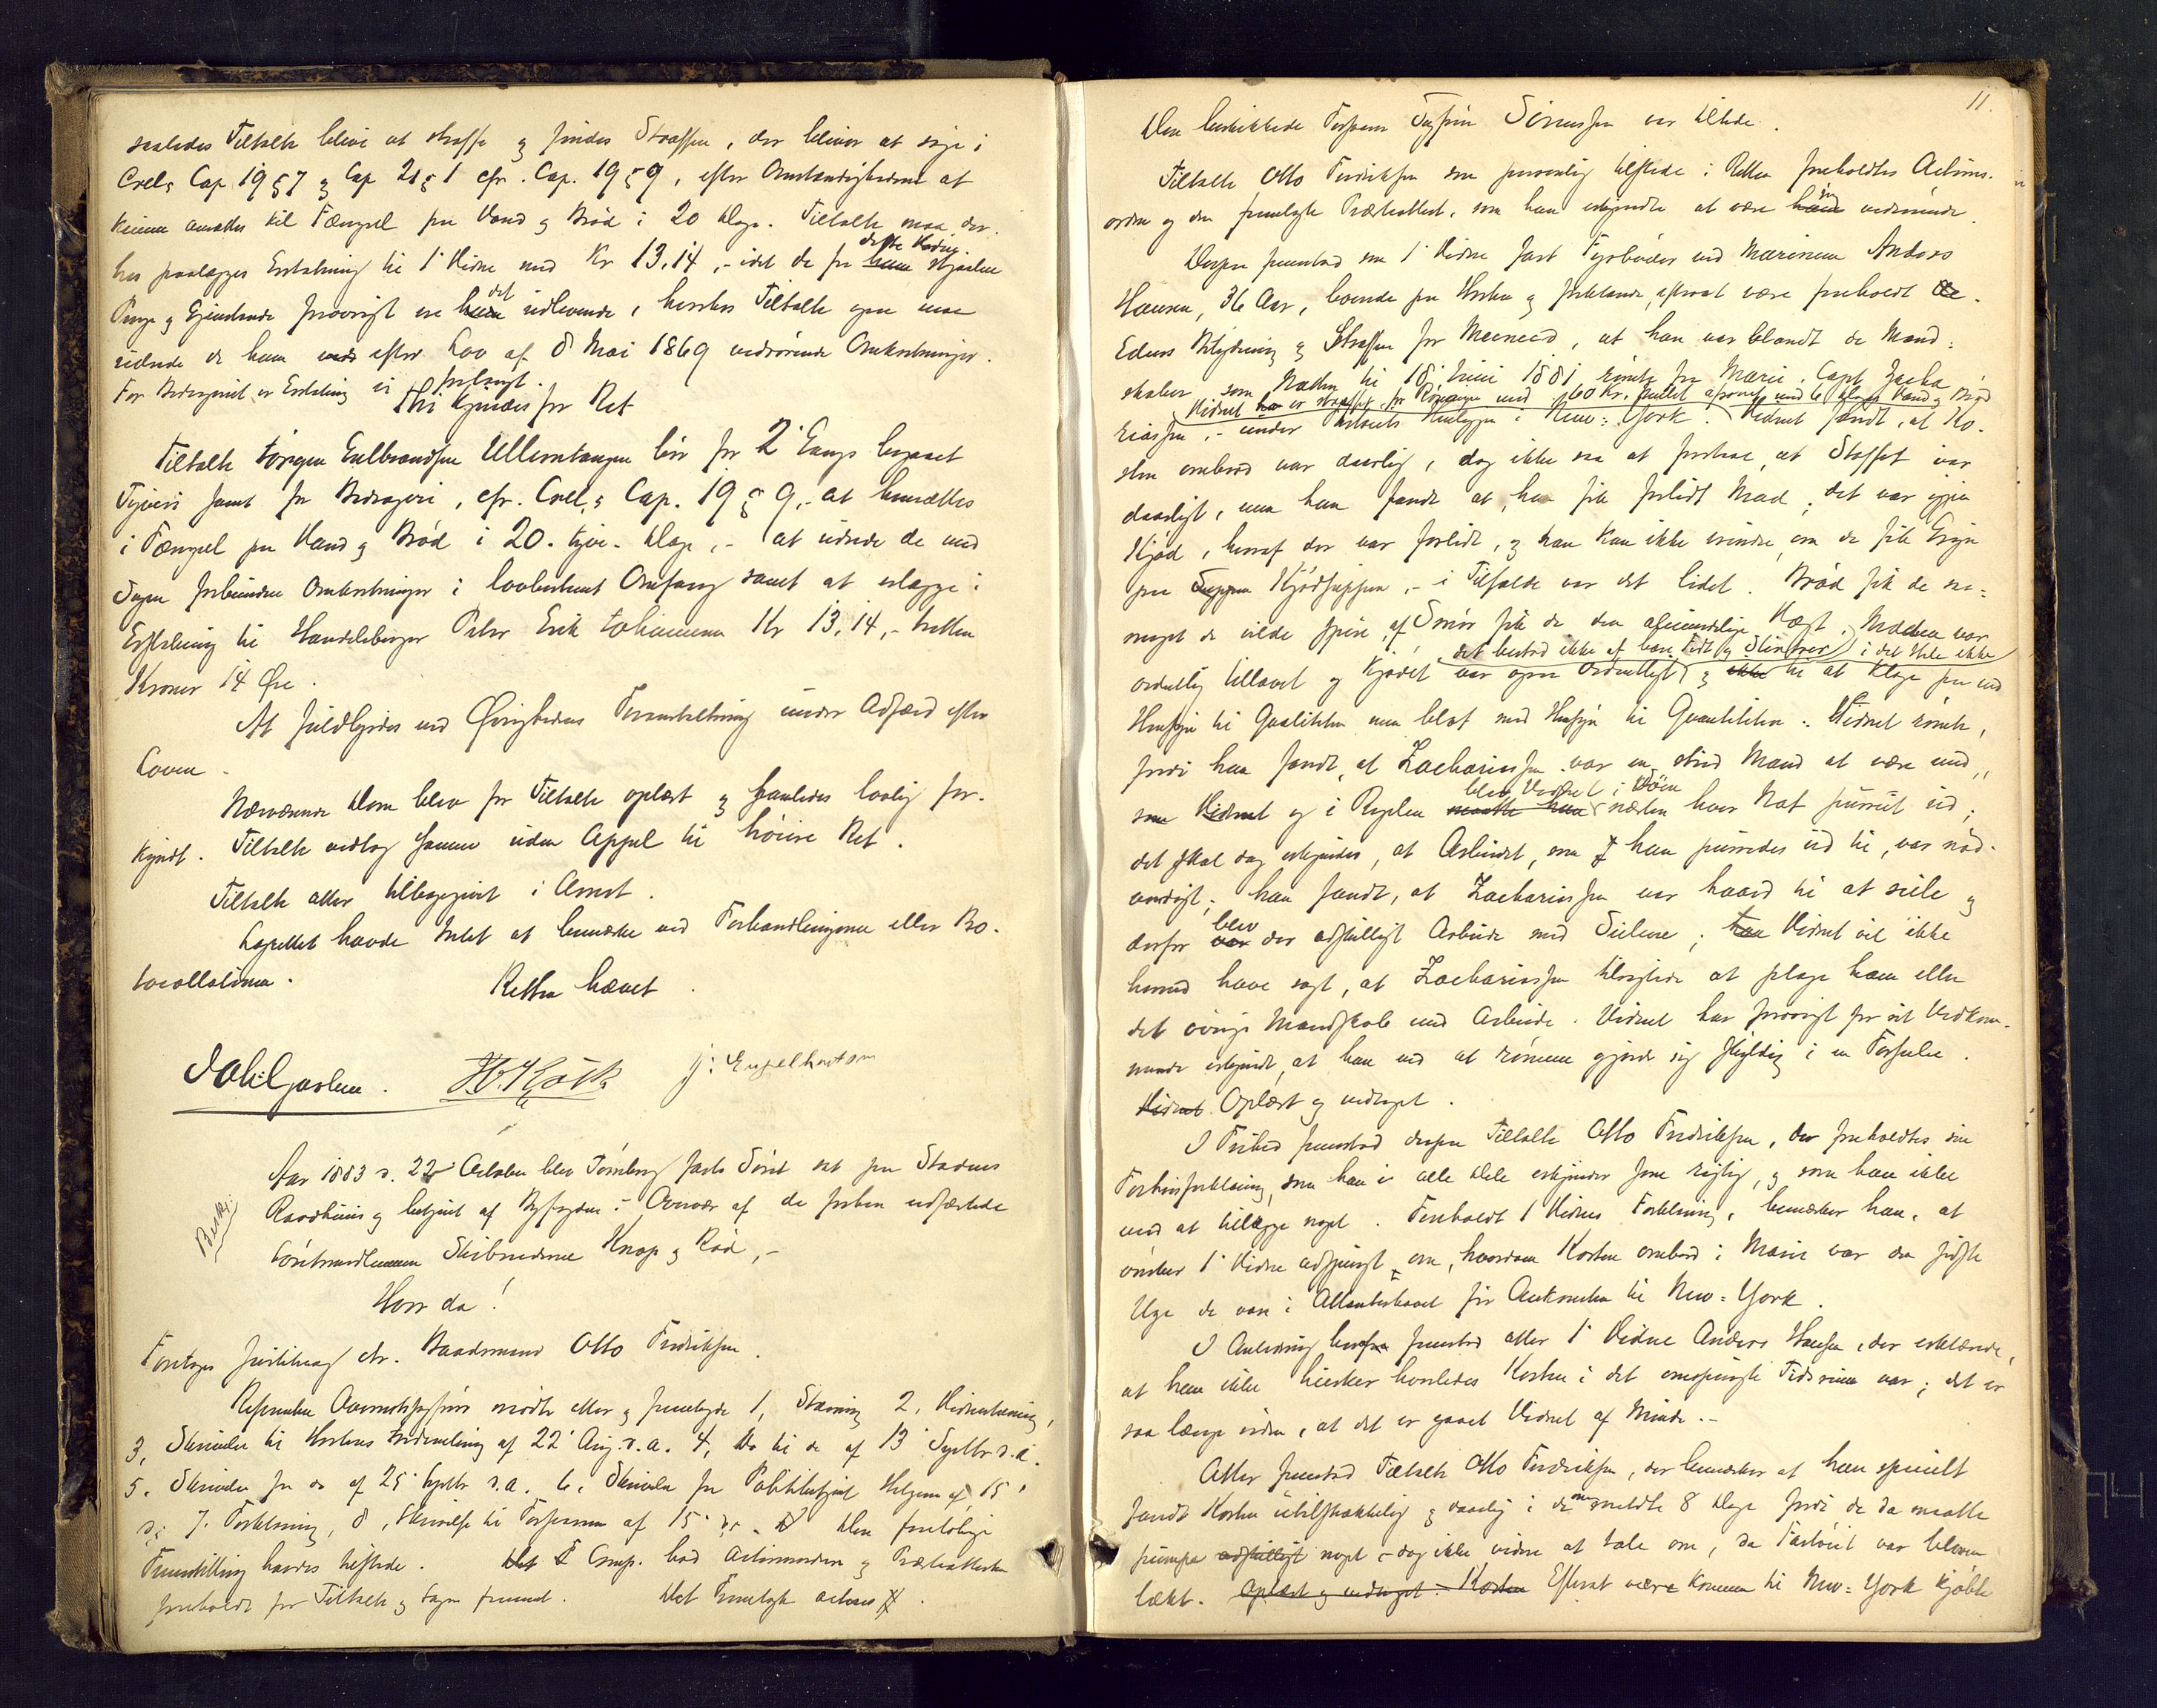 saaledes Tiltalte blive at straffe og findes Straffen, der bliver at søge i
Crel's Cap. 19 § 7 og Cap 21 § 1 cfr. Cap. 19 § 9, efter Omstændighederne at
kunne ansættes til Fængsel paa Vand og Brød i 20 Dage. Tiltalte maa der-
hos paalægges Erstatning til 1' Vidne med Kr 13,14, - idet de fra ham dette Vidne stjaalne
Penge og Gjenstande forøvrigt ere ham det udleverede, hvorhos Tiltalte ogsaa maa
udrede de ham efter Lov af 8 Mai 1869 vedrørende Omkostninger.
For Bedrageriet er Erstatning ei forlangt.
Thi kjendes for Ret
Tiltalte Jørgen Gulbrandsen Ullerntangen bør for 2' Gangs begaaet
Tyveri samt for Bedrageri, cfr. Crel,s Cap. 19 § 9, - at hensættes
i Fængsel paa Vand og Brød i 20 - tyve - Dage, - at udrede de med
Sagen forbundne Omkostninger i lovbestemt Omfang samt at erlægge i
Erstatning til Handelsborger Peter Erik Johannesen Kr 13,14, - tretten
Kroner 14 Øre.
At fuldbyrdes ved Øvrighedens Foranstaltning under Adfærd efter
Loven.
Nærværende Dom blev for Tiltalte oplæst og saaledes lovlig for-
kyndt. Tiltalte vedtog samme uden Appel til høiere Ret.
Tiltalte atter tilbagegivet i Arrest.
Lagrettet havde Intet at bemærke ved Forhandlingerne eller Pro-
tocollationen.
Retten hævet.
J. Engelhartsen
Aar 1883 d. 22 October blev Tønsberg Byes Søret sat paa Stadens
Raadhuus og betjent af Byfogden i Overvær af de forhen udnævnte
Søretsmedlemmer Skibsrederne Knap og Rød, -
Hvor da!
Foretoges Justitssag ctr. Baadsmand Otto Fredriksen.
mødte atter og fremlagde 1, Stævning 2, Vidnestævning,
3, Skrivelse til Hortens Indrullering af 22' Aug. d.a. 4, Do til do af 13' Septbr d.a.
5. Skrivelse fra do af 25' Septbr d.a. 6, Skrivelse fra Politibetjent Helgesen af 15'
ds. 7. Forklaring, 8, Skrivelse til Forsvareren af 15' ds. Den frivillige
Fremstilling havdes tilstede. Comp. bad Actionsordren og Præsteattesten
foreholdt for Tiltalte og Sagen fremmet. Det Fremlagte acteres
11.
Den beskikkede Forsvarer Sagfører Sørensen var tilstede.
Tiltalte Otto Fredriksen som personlig tilstede i Retten foreholdtes Actions-
ordren og den fremlagte Præsteattest, som han erkjendte at være ham sig vedrørende.
Derpaa fremstod som 1' Vidne fast Fyrbøder ved Marinen Anders
Hansen, 36 Aar, boende paa Horten og forklarede, efterat være foreholdt
Edens Betydning og Straffen for Meened, at han var blandt de Mand-
skaber som Natten til 18' Juni 1881 rømte fra Marie, Capt Zacha-
Vidnet er straffet for Rømningen med 60 Kr. Mulct afsonet med 6 Dage Vand og Brød
riassen, - under Fartøiets Henliggen i New-York. Vidnet fandt, at Ko-
sten ombord var daarlig, dog ikke saa at forstaa, at Stoffet var
daarligt, men han fandt at han fik forlidt Mad; det var igjen
Kjød, hvoraf der var forlidt, og han kan ikke erindre, om de fik Gryn
paa Suppen Kjødsuppen, - i Tilfælde var det lidet. Brød fik de saa-
meget de vilde spise, af Smør fik de den almindelige Vægt. Maden var
det bestod ikke af bare Fedt og Slintrer, i det Hele ikke
ordentlig tillavet og Kjødet var ogsaa ordentligt og ikke til at klage paa med
Hensyn til Qvaliteten men blot med Hensyn til Qvantiteten. Vidnet rømte,
fordi han fandt, at Zachariassen var en strid Mand at være med,
som Vidnet og i Regelen maatte han blev Vidnet i Køien næsten hver Nat purret ud;
det skal dog erkjendes, at Arbeidet, som han purredes ud til, var nød-
vendigt; han fandt, at Zachariassen var haard til at seile og
derfor var blev der adskilligt Arbeide med Seilene; han Vidnet vil ikke
hermed have sagt, at Zachariassen tilsigtede at plage ham eller
det øvrige Mandskab med Arbeide. Vidnet har forøvrigt for sit Vedkom-
mende erkjendt, at han ved at rømme gjorde sig skyldig i en Forseelse.
Vidnet Oplæst og vedtaget.
I Frihed fremstod derpaa Tiltalte Otto Fredriksen, der foreholdtes sin
Forhørsforklaring, som han i alle Dele erkjender som rigtig, og som han ikke
ved at tillægge noget. Foreholdt 1 Vidnes Forklaring, bemærker han, at
ønsker 1' Vidne adspurgt om, hvordan Kosten ombord i Marie var den sidste
Uge de var i Atlanterhavet før Ankomsten til New-York.
I Anledning heraf fremstod atter 1' Vidne Anders Hansen, der erklærede,
at han ikke husker hvorledes Kosten i det omspurgte Tidsrum var; det er
saa længe siden, at det er gaaet Vidnet af Minde. -
Atter fremstod Tiltalte Otto Fredriksen, der bemærker at han specielt
fandt Kosten utilstrækkelig og daarlig i de ommeldte 8 Dage fordi de da maatte
pumpe adskilligt noget - dog ikke videre at tale om, da Fartøiet var bleven
lækt. Oplæst og vedtaget - Kosten Efterat være kommen til New-York kjøbte